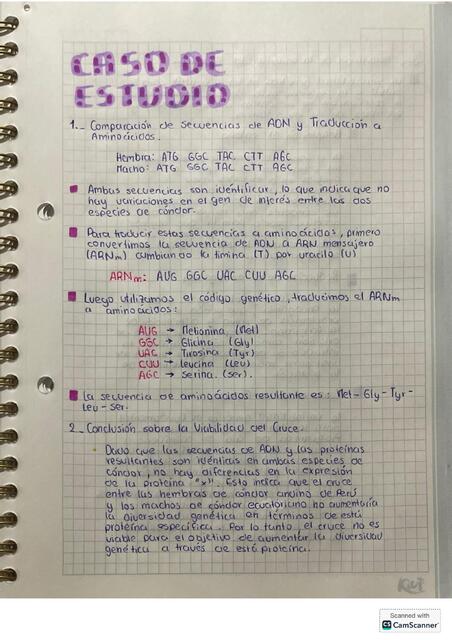 CASO DE
ESTUDIO
1._ Comparación de secuencias de ADN y Traducción a
Aminoácidos.
Hembra: ATG GGC TAC CTT AGC
Macho: ATG GGC TAC CTT AGC
Ambas secuencias son identificar, lo que indica que no
hay variaciones en el gen de interés entre las dos
especies de cóndor.
Para traducir estas secuencias a aminoácidos, primero
convertimos la secuencia de ADN a ARN mensajero
(ARNm) cambiando la timina (T) por uracilo (U)
ARNm: AUG GGC UAC CUU AGC
Luego utilizamos el código genético, traducimos el ARNm
a aminoácidos:
AUG → Metionina (Met)
GGC → Glicina (Gly)
UAC → Tirosina (Tyr)
CUU → Leucina (Leu)
AGC → Serina. (Ser).
La secuencia de aminoácidos resultante es: Met-Gly-Tyr-
Leu-Ser.
2._ Conclusión sobre la Viabilidad del Cruce.
Dado que las secuencias de ADN y las proteínas
resultantes son idénticas en ambas especies de
cóndor, no hay diferencias en la expresión
de la proteína "x". Esto indica que el cruce
entre las hembras de cóndor andino de Perú
y los machos de cóndor ecuatoriano no aumentaría
la diversidad genética en términos de está
proteína específica. Por lo tanto, el cruce no es
viable para el objetivo de aumentar la diversidad
genética a través de está proteína.
Scanned with
CS CamScanner